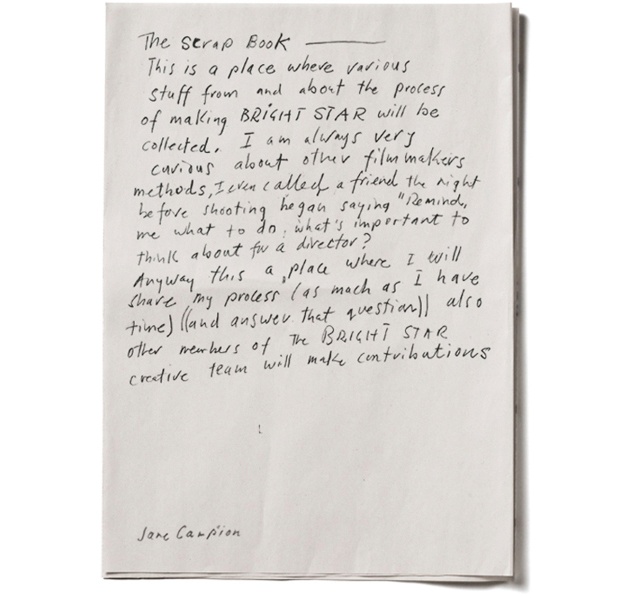 The Scrap Book ———
This is a place where various
stuff from and about the process
of making BRIGHT STAR will be
collected. I am always very
curious about other filmmakers
methods, I even called a friend the night
before shooting began saying "Remind,
me what to do, what's important to
think about for a director?
Anyway this a place where I will
share my process (as much as I have
time) ((and answer that question)) also
other members of the BRIGHT STAR
creative team will make contributions
Jane Campion